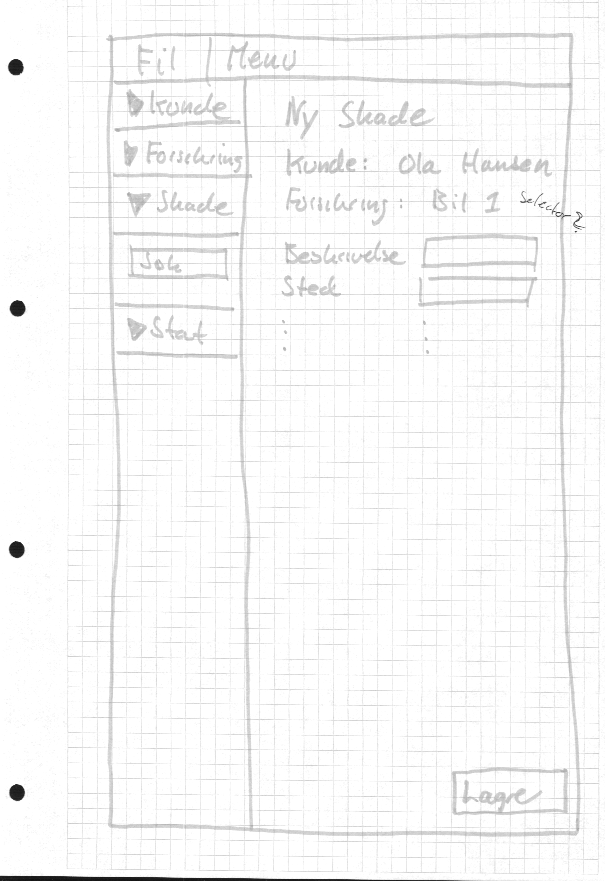 Fil | Menu
Kunde
Forsikring
Skade
Søk
Stat
Ny Skade
Kunde: Ola Hansen
Forsikring: Bil 1 Selector?
Beskrivelse
Sted
Lagre